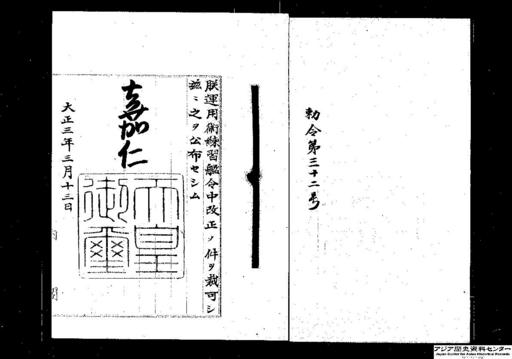 勅令第三十二号
朕運用術練習艦令中改正ノ件ヲ裁可シ
茲ニ之ヲ公布セシム
嘉仁
天皇御璽
大正三年三月十三日
内
閣
アジア歴史資料センター
Japan Center for Asian Historical Records